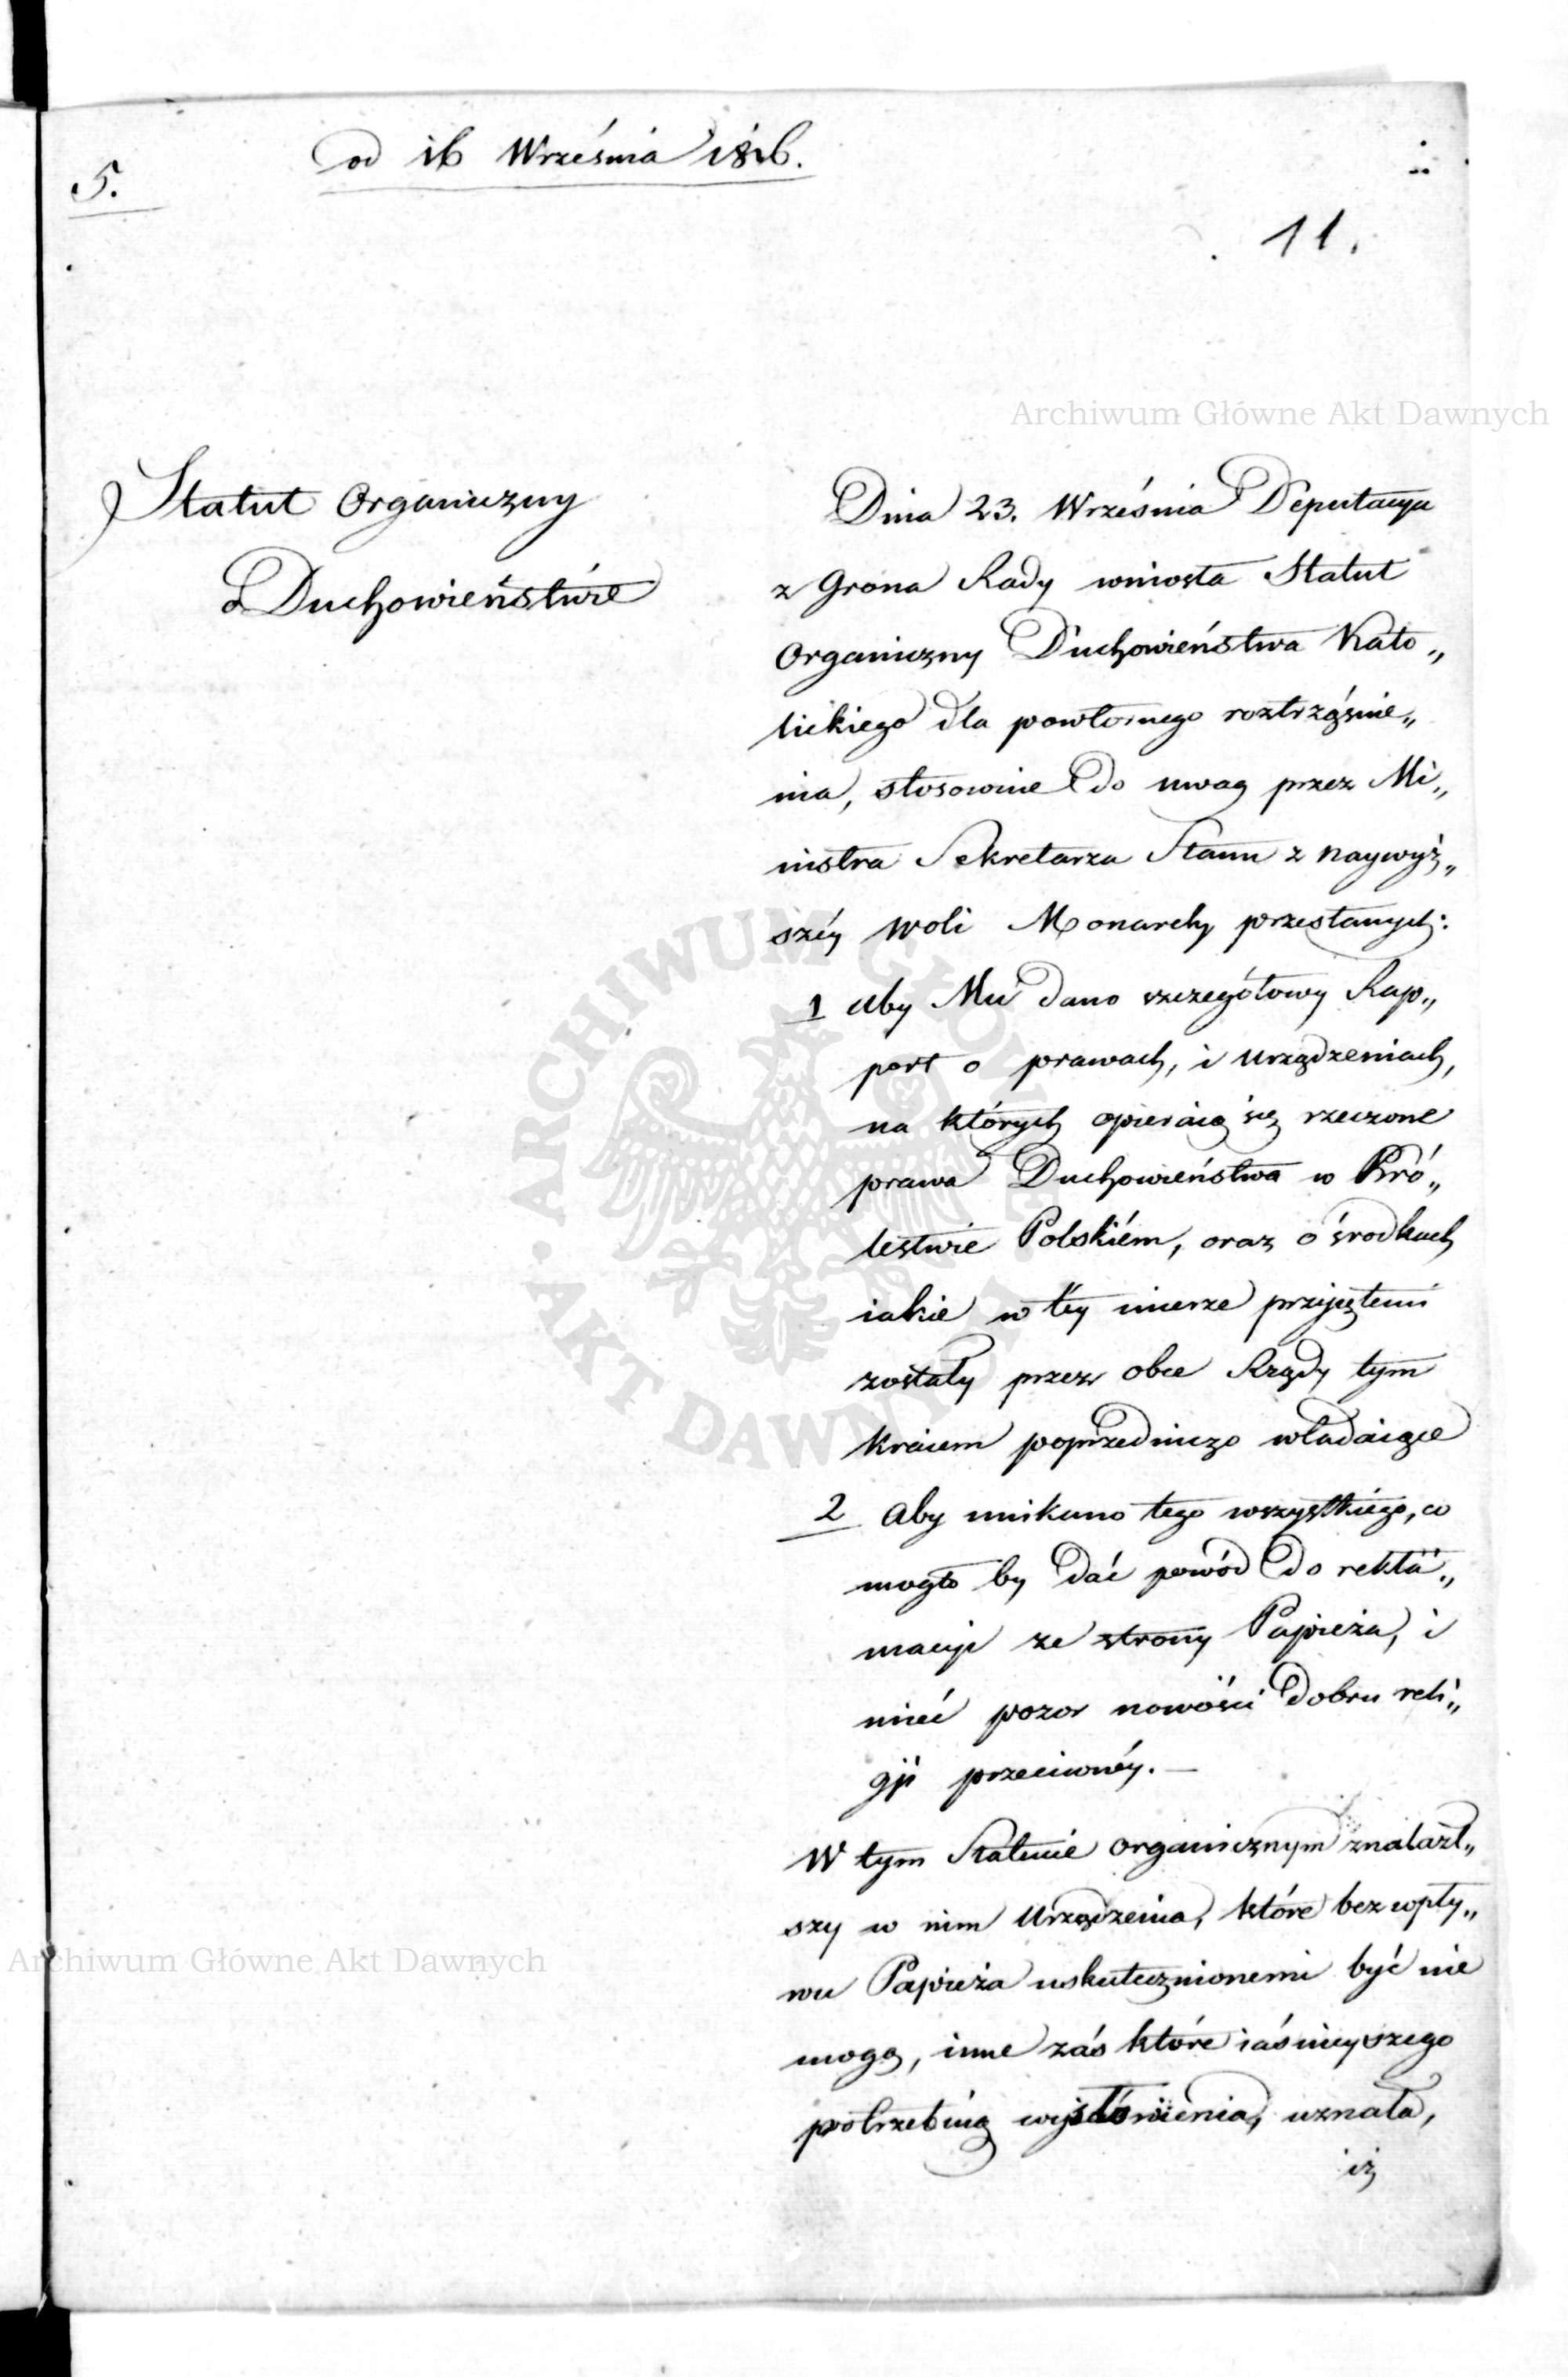 od 16 Września 1816.
5.
11.
Archiwum Główne Akt Dawnych
Statut Organiczny
o Duchowieństwie
Dnia 23. Września Deputacya
z Grona Rady wniosła Statut
Organiczny Duchowieństwa Kato„
lickiego dla powtornego roztrząśnie„
nia, stosownie do uwag przez Mi„
nistra Sekretarza Stanu z naywyż„
széy woli Monarchy przesłanych:
1 aby Mu dano szczegółowy Rap„
port o prawach, i urządzeniach,
na których opieraią się rzeczone
prawa Duchowieństwa w Kró„
lestwie Polskiém, oraz o środkach
iakie w téy mierze przyjętemi
zostały przez obce Rządy tym
kraiem poprzedniczo władaiące
2 Aby unikano tego wszystkiego, co
mogło by dać powód do rekla„
macyi ze strony Papieża, i
mieć pozor nowości dobru reli„
gji przeciwnéy. —
W tym Statucie organicznym znalazł„
szy w nim Urządzenia, które bez wpły„
wu Papieża uskutecznionemi być nie
mogą, inne zaś które iaśnieyszego
potrzebuią wysłowienia, uznała,
iż
Archiwum Główne Akt Dawnych
ARCHIWUM GŁÓWNE AKT DAWNYCH